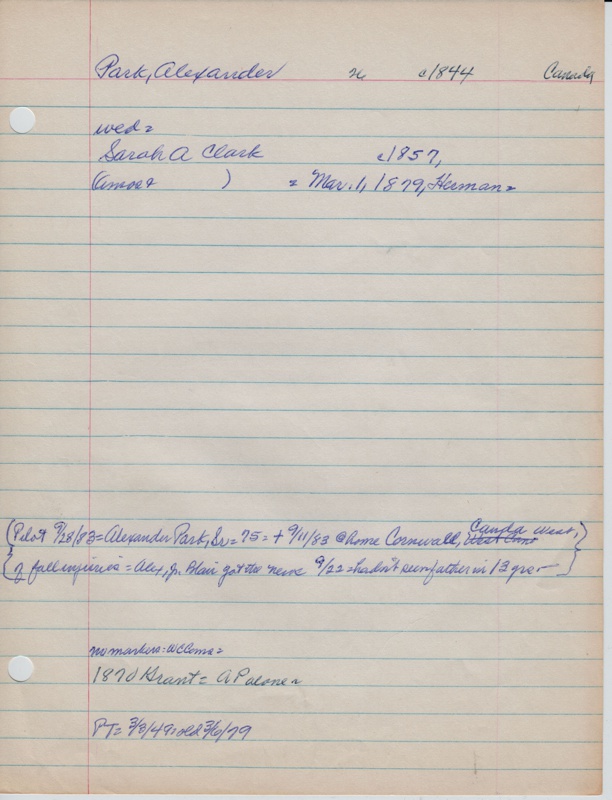 Park, Alexander n c1844 Canada
wed=
Sarah A Clark c1857,
(Amos & ) = Mar. 1, 1879, Herman=
(Pilot 9/28/83=Alexander Park, Sr=75=+ 9/11/83 @ home Cornwall, Canda West,
of fall injuries=Alex, Jr. Blair got the news 9/22=hadn't seen father in 13 yrs-)
no markers=WCCems=
1870 Grant= A P alone=
PT= 3/3/49; old 3/6/79